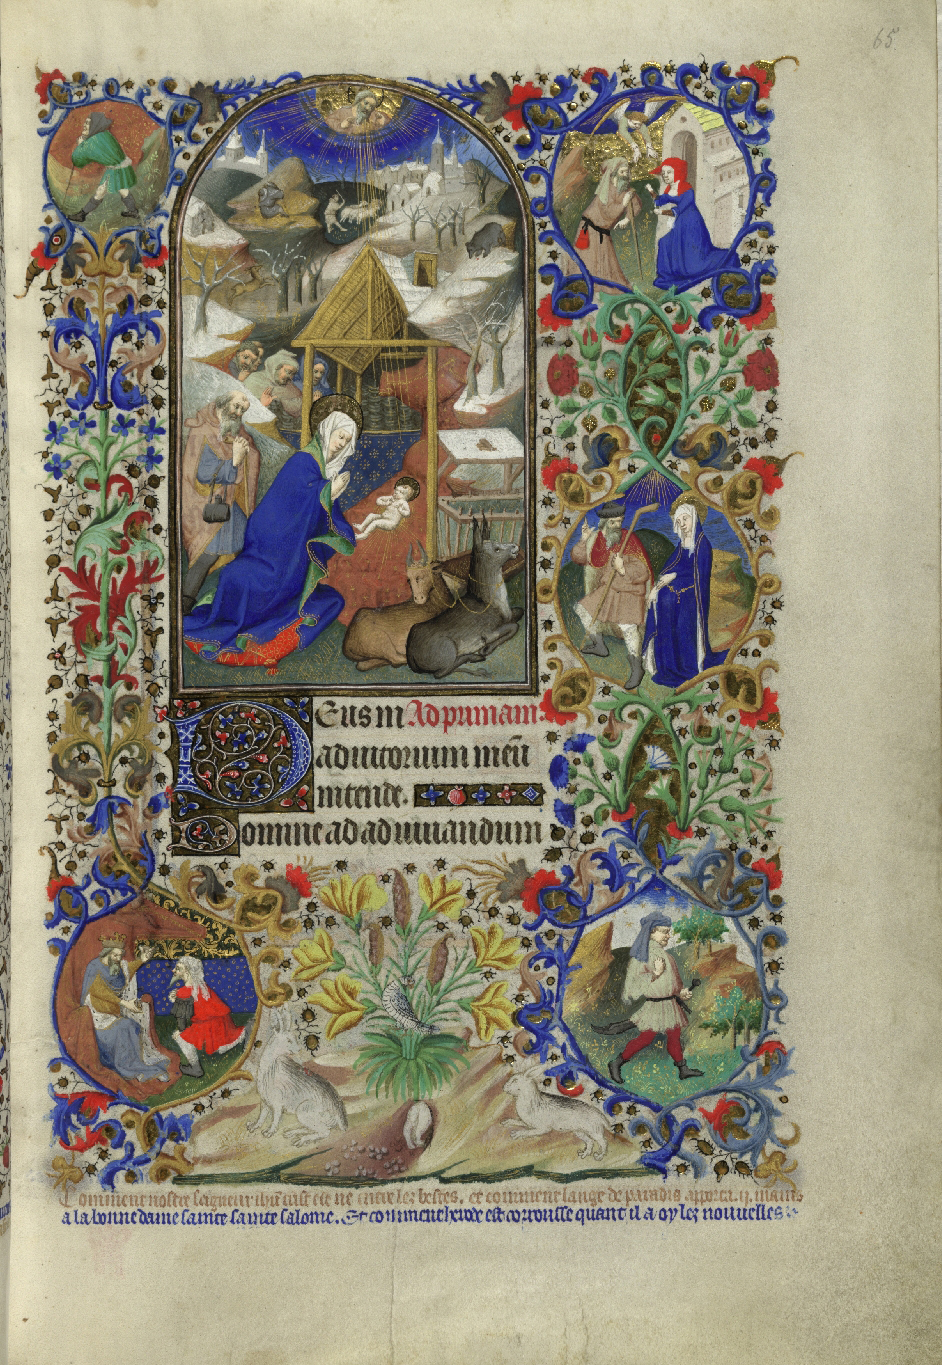 65
Deus in Ad primam.
adiutorium meū
intende.
Domine ad adiuuandum
Comment nostre seigneur ihūcrist est ne entre lez bestes, et comment lange de paradis apporta .ii. mains
a la bonne dame saincte saincte salome. Et comment herode est corrousse quant il a oy lez nouuelles